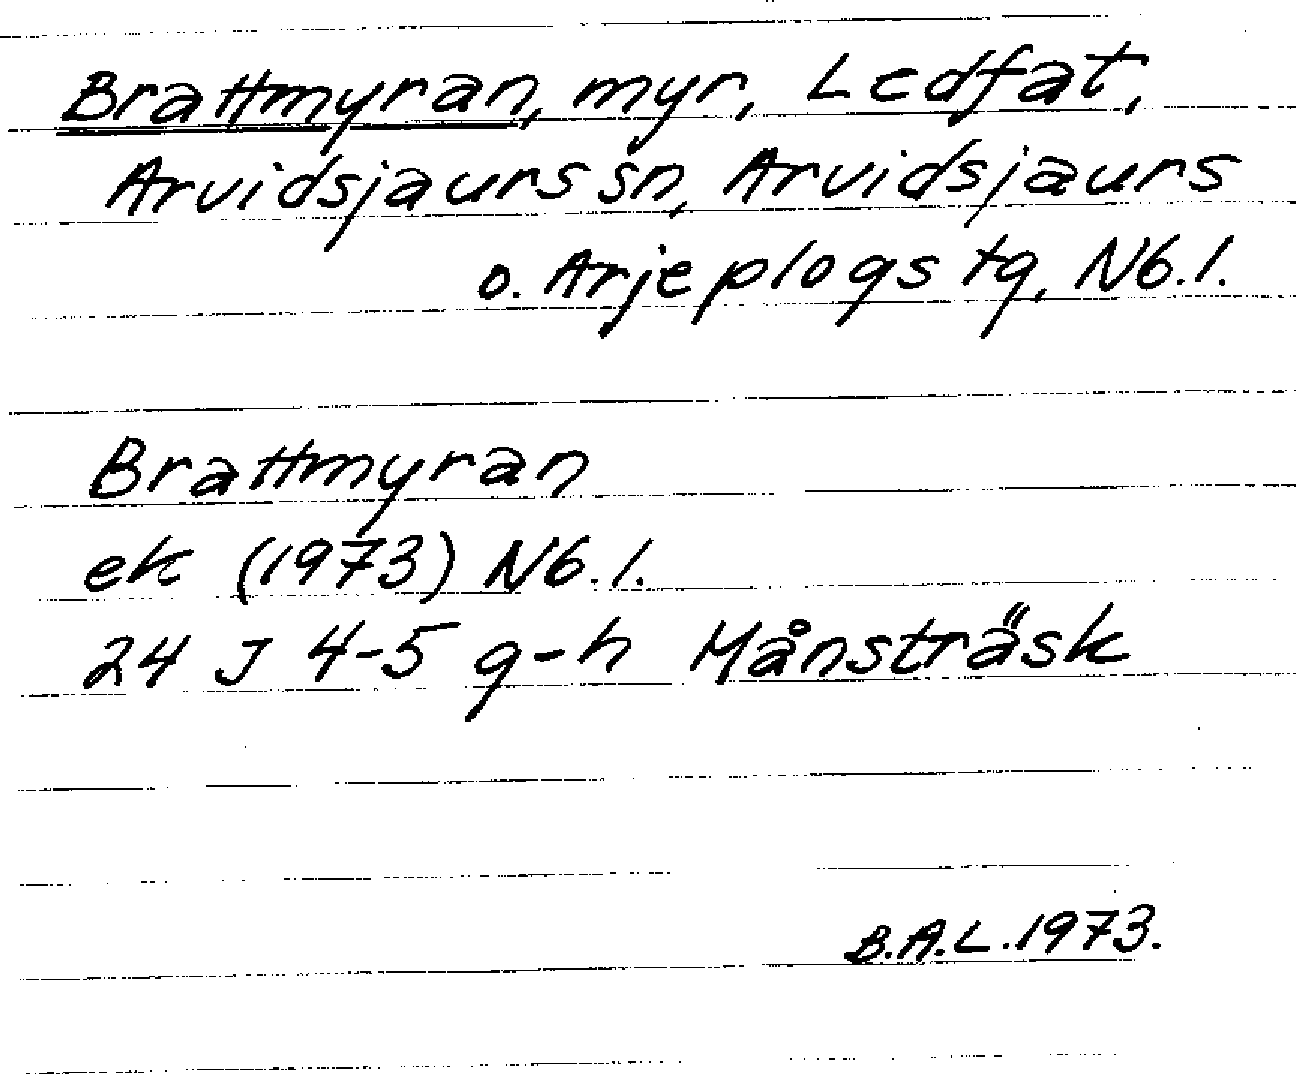 Brattmyran, myr, Ledfat,
Arvidsjaurs sn, Arvidsjaurs
o. Arjeplogs tg, Nb.l.
Brattmyran
ek (1973) Nb.l.
24 J 4-5 g-h Månsträsk
B.A.L. 1973.